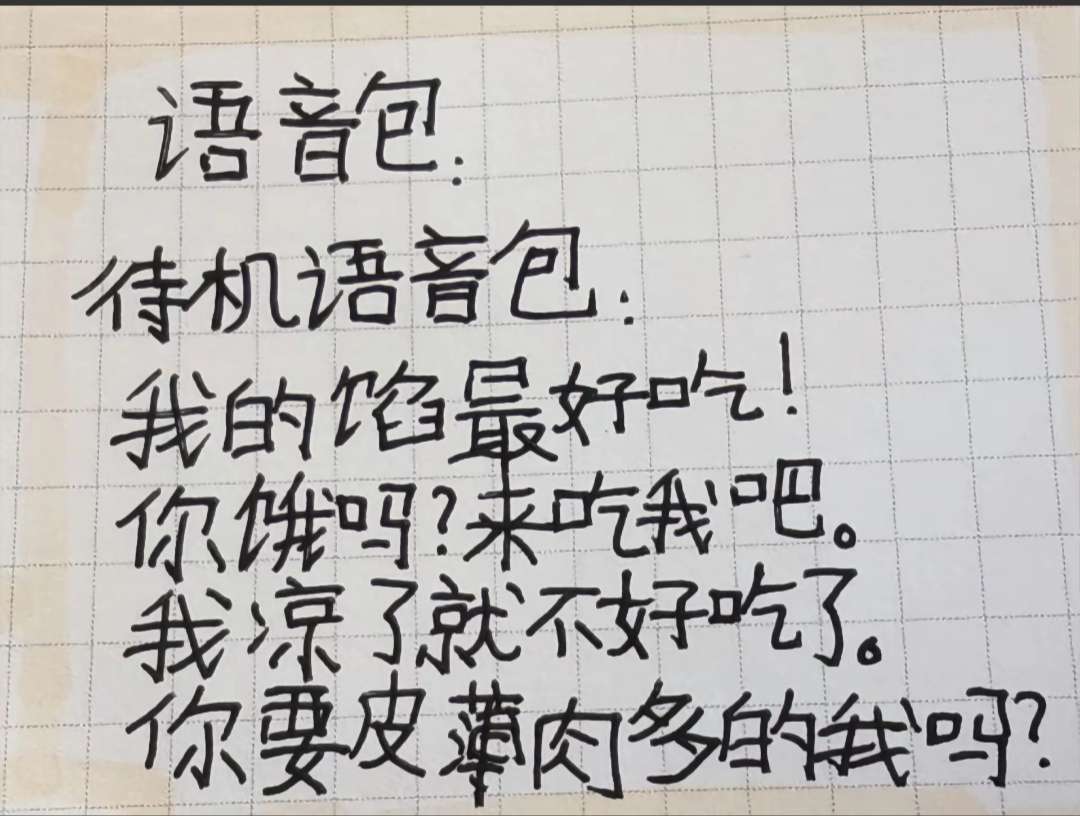 语音包:
待机语音包:
我的馅最好吃!
你饿吗?来吃我吧。
我凉了就不好吃了。
你要皮薄肉多的我吗?